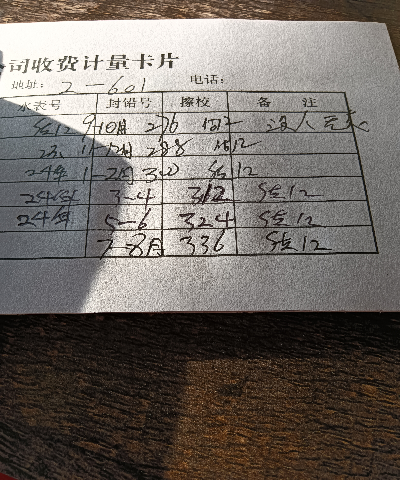 司收费计量卡片
地址: 2-601 电话:
水表号 封铅号 擦校 备 注
估12 9-10月 276 估12 没人
23. 11-12月 288 估12
24年 1-2月 300 估12
24年 3-4 312 估12
24年 5-6 324 估12
7-8月 336 估12